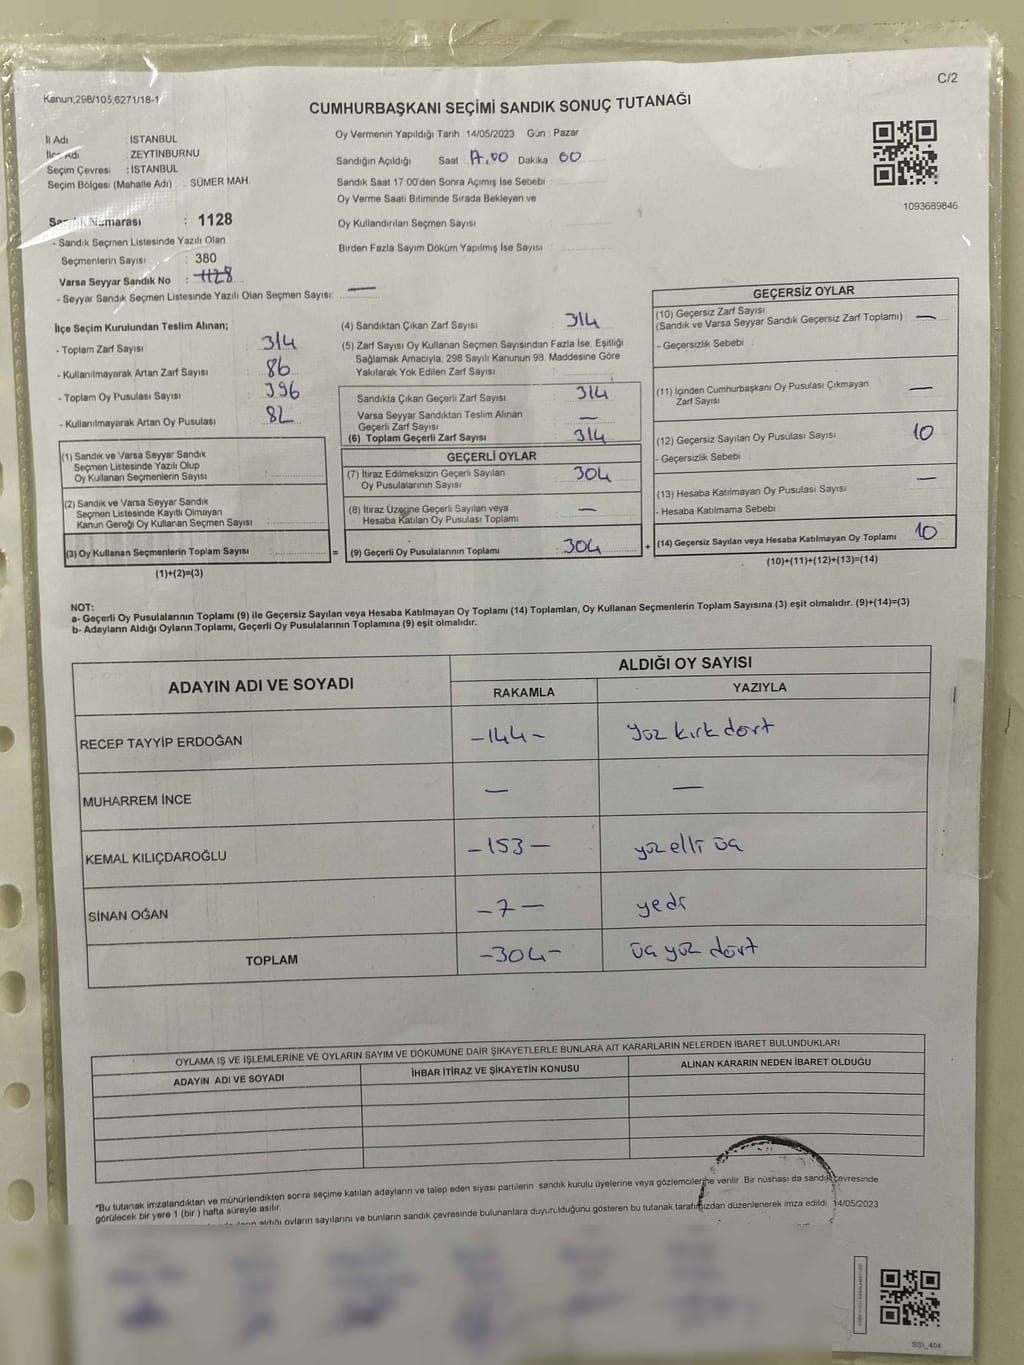 C/2
Kanun;298/105,6271/18-1
CUMHURBAŞKANI SEÇİMİ SANDIK SONUÇ TUTANAĞI
İl Adı : İSTANBUL
Adı : ZEYTİNBURNU
Seçim Çevresi : İSTANBUL
Seçim Bölgesi (Mahalle Adı) : SÜMER MAH.
Oy Vermenin Yapıldığı Tarih : 14/05/2023 Gün : Pazar
Sandığın Açıldığı Saat 17.00 Dakika 00
Sandık Saat 17:00'den Sonra Açımış İse Sebebi :
Oy Verme Saati Bitiminde Sırada Bekleyen ve
Oy Kullandırılan Seçmen Sayısı
Birden Fazla Sayım Döküm Yapılmış İse Sayısı :
1093689846
Numarası : 1128
- Sandık Seçmen Listesinde Yazılı Olan
Seçmenlerin Sayısı : 380
Varsa Seyyar Sandık No : 1128
- Seyyar Sandık Seçmen Listesinde Yazılı Olan Seçmen Sayısı: —
İlçe Seçim Kurulundan Teslim Alınan;
- Toplam Zarf Sayısı : 314
- Kullanılmayarak Artan Zarf Sayısı : 86
- Toplam Oy Pusulası Sayısı : 396
- Kullanılmayarak Artan Oy Pusulası : 82
(1) Sandık ve Varsa Seyyar Sandık
Seçmen Listesinde Yazılı Olup
Oy Kullanan Seçmenlerin Sayısı :
(2) Sandık ve Varsa Seyyar Sandık
Seçmen Listesinde Kayıtlı Olmayan
Kanun Gereği Oy Kullanan Seçmen Sayısı :
(3) Oy Kullanan Seçmenlerin Toplam Sayısı : =
(1)+(2)=(3)
(4) Sandıktan Çıkan Zarf Sayısı : 314
(5) Zarf Sayısı Oy Kullanan Seçmen Sayısından Fazla İse, Eşitliği
Sağlamak Amacıyla; 298 Sayılı Kanunun 98. Maddesine Göre
Yakılarak Yok Edilen Zarf Sayısı :
Sandıkta Çıkan Geçerli Zarf Sayısı : 314
Varsa Seyyar Sandıktan Teslim Alınan
Geçerli Zarf Sayısı : —
(6) Toplam Geçerli Zarf Sayısı : 314
GEÇERLİ OYLAR
(7) İtiraz Edilmeksizin Geçerli Sayılan
Oy Pusulalarının Sayısı : 304
(8) İtiraz Üzerine Geçerli Sayılan veya
Hesaba Katılan Oy Pusulası Toplamı : —
(9) Geçerli Oy Pusulalarının Toplamı : 304 +
GEÇERSİZ OYLAR
(10) Geçersiz Zarf Sayısı
(Sandık ve Varsa Seyyar Sandık Geçersiz Zarf Toplamı) : —
- Geçersizlik Sebebi :
(11) İçinden Cumhurbaşkanı Oy Pusulası Çıkmayan
Zarf Sayısı —
(12) Geçersiz Sayılan Oy Pusulası Sayısı : 10
- Geçersizlik Sebebi :
(13) Hesaba Katılmayan Oy Pusulası Sayısı : —
- Hesaba Katılmama Sebebi :
(14) Geçersiz Sayılan veya Hesaba Katılmayan Oy Toplamı : 10
(10)+(11)+(12)+(13)=(14)
NOT:
a- Geçerli Oy Pusulalarının Toplamı (9) ile Geçersiz Sayılan veya Hesaba Katılmayan Oy Toplamı (14) Toplamları, Oy Kullanan Seçmenlerin Toplam Sayısına (3) eşit olmalıdır. (9)+(14)=(3)
b- Adayların Aldığı Oyların Toplamı, Geçerli Oy Pusulalarının Toplamına (9) eşit olmalıdır.
ADAYIN ADI VE SOYADI
ALDIĞI OY SAYISI
RAKAMLA YAZIYLA
RECEP TAYYİP ERDOĞAN -144- yüz kırk dört
MUHARREM İNCE — —
KEMAL KILIÇDAROĞLU -153- yüz elli üç
SİNAN OĞAN -7- yedi
TOPLAM -304- üç yüz dört
OYLAMA İŞ VE İŞLEMLERİNE VE OYLARIN SAYIM VE DÖKÜMÜNE DAİR ŞİKAYETLERLE BUNLARA AİT KARARLARIN NELERDEN İBARET BULUNDUKLARI
ADAYIN ADI VE SOYADI İHBAR İTİRAZ VE ŞİKAYETİN KONUSU ALINAN KARARIN NEDEN İBARET OLDUĞU
*Bu tutanak imzalandıktan ve mühürlendikten sonra seçime katılan adayların ve talep eden siyasi partilerin sandık kurulu üyelerine veya gözlemcilerine verilir. Bir nüshası da sandık çevresinde
görülecek bir yere 1 (bir ) hafta süreyle asılır.
aldığı oyların sayılarını ve bunların sandık çevresinde bulunanlara duyurulduğunu gösteren bu tutanak tarafımızdan düzenlenerek imza edildi. 14/05/2023
SSI_404